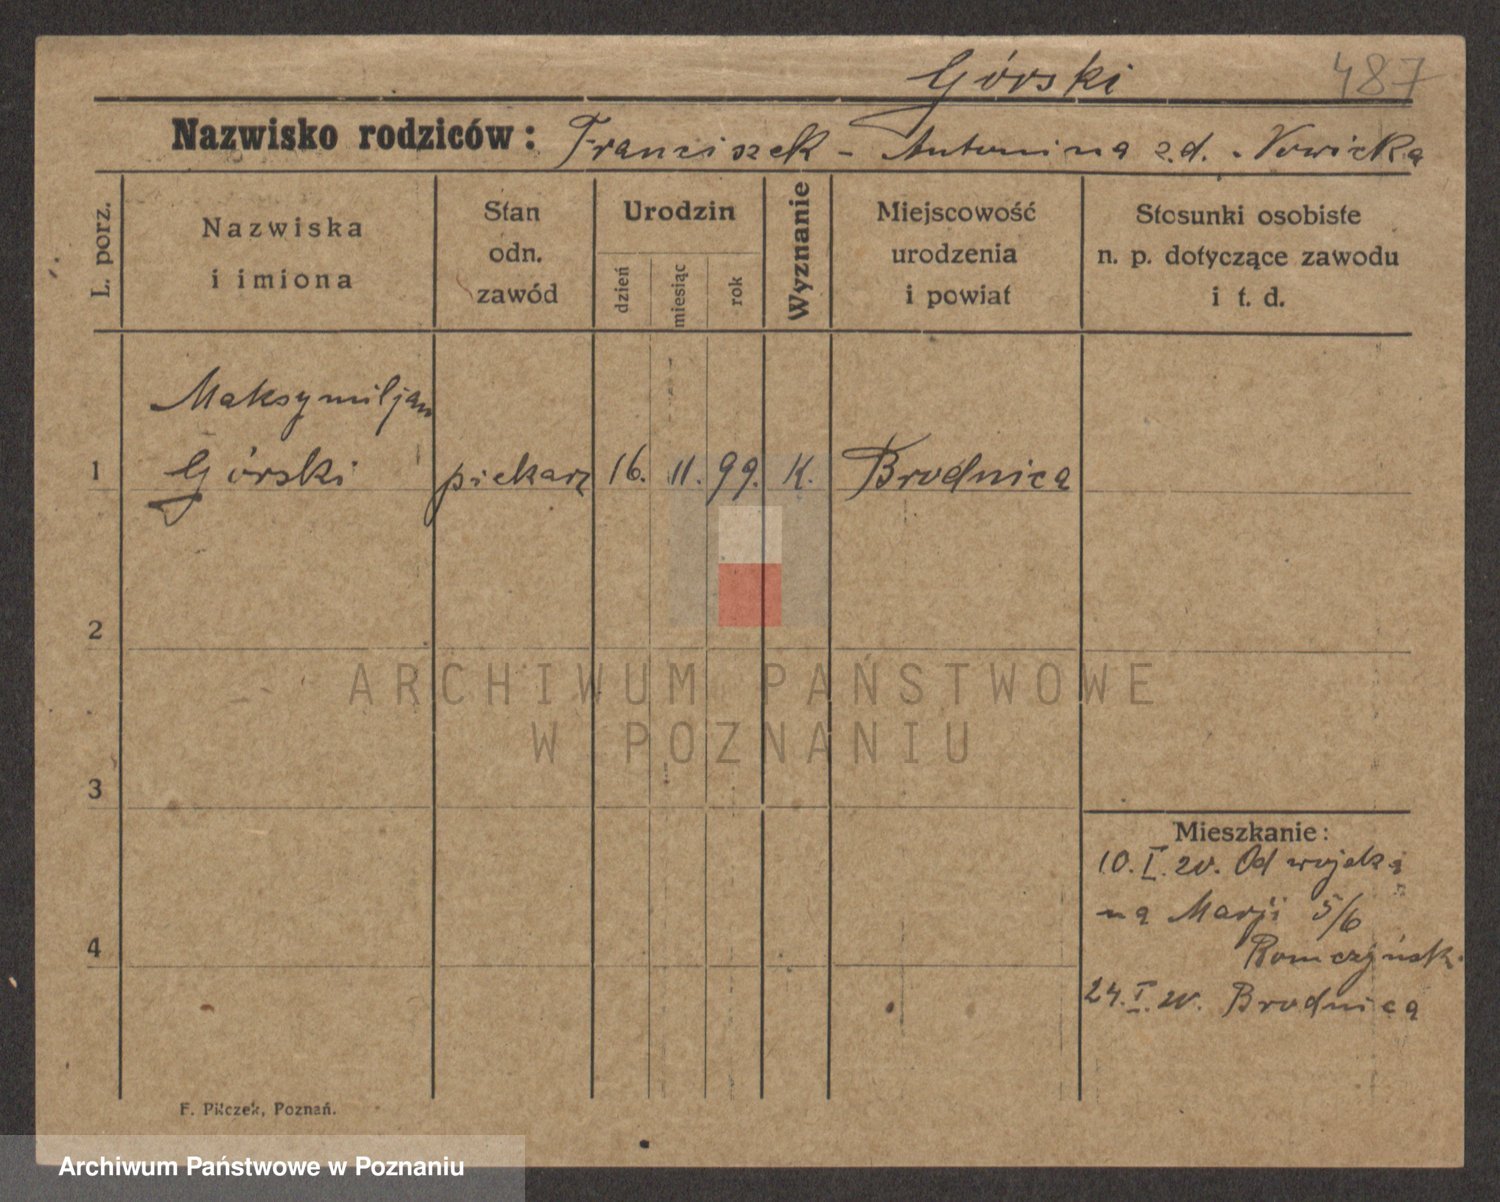 Górski 487
Nazwisko rodziców: Franciszek - Antonina z.d. Nowicka
L. porz.
Nazwiska
i imiona
Stan
odn.
zawód
Urodzin
dzień
miesiąc
rok
Wyznanie
Miejscowość
urodzenia
i powiat
Stosunki osobiste
n. p. dotyczące zawodu
i t. d.
Maksymiljan
1 Górski piekarz 16. 11. 99. K. Brodnica
2
ARCHIWUM PAŃSTWOWE
W POZNANIU
3
Mieszkanie:
10. I. 20. Od wojska
na Marji 5/6
4
24. I. 20. Brodnica
F. Pilczek, Poznań.
Archiwum Państwowe w Poznaniu